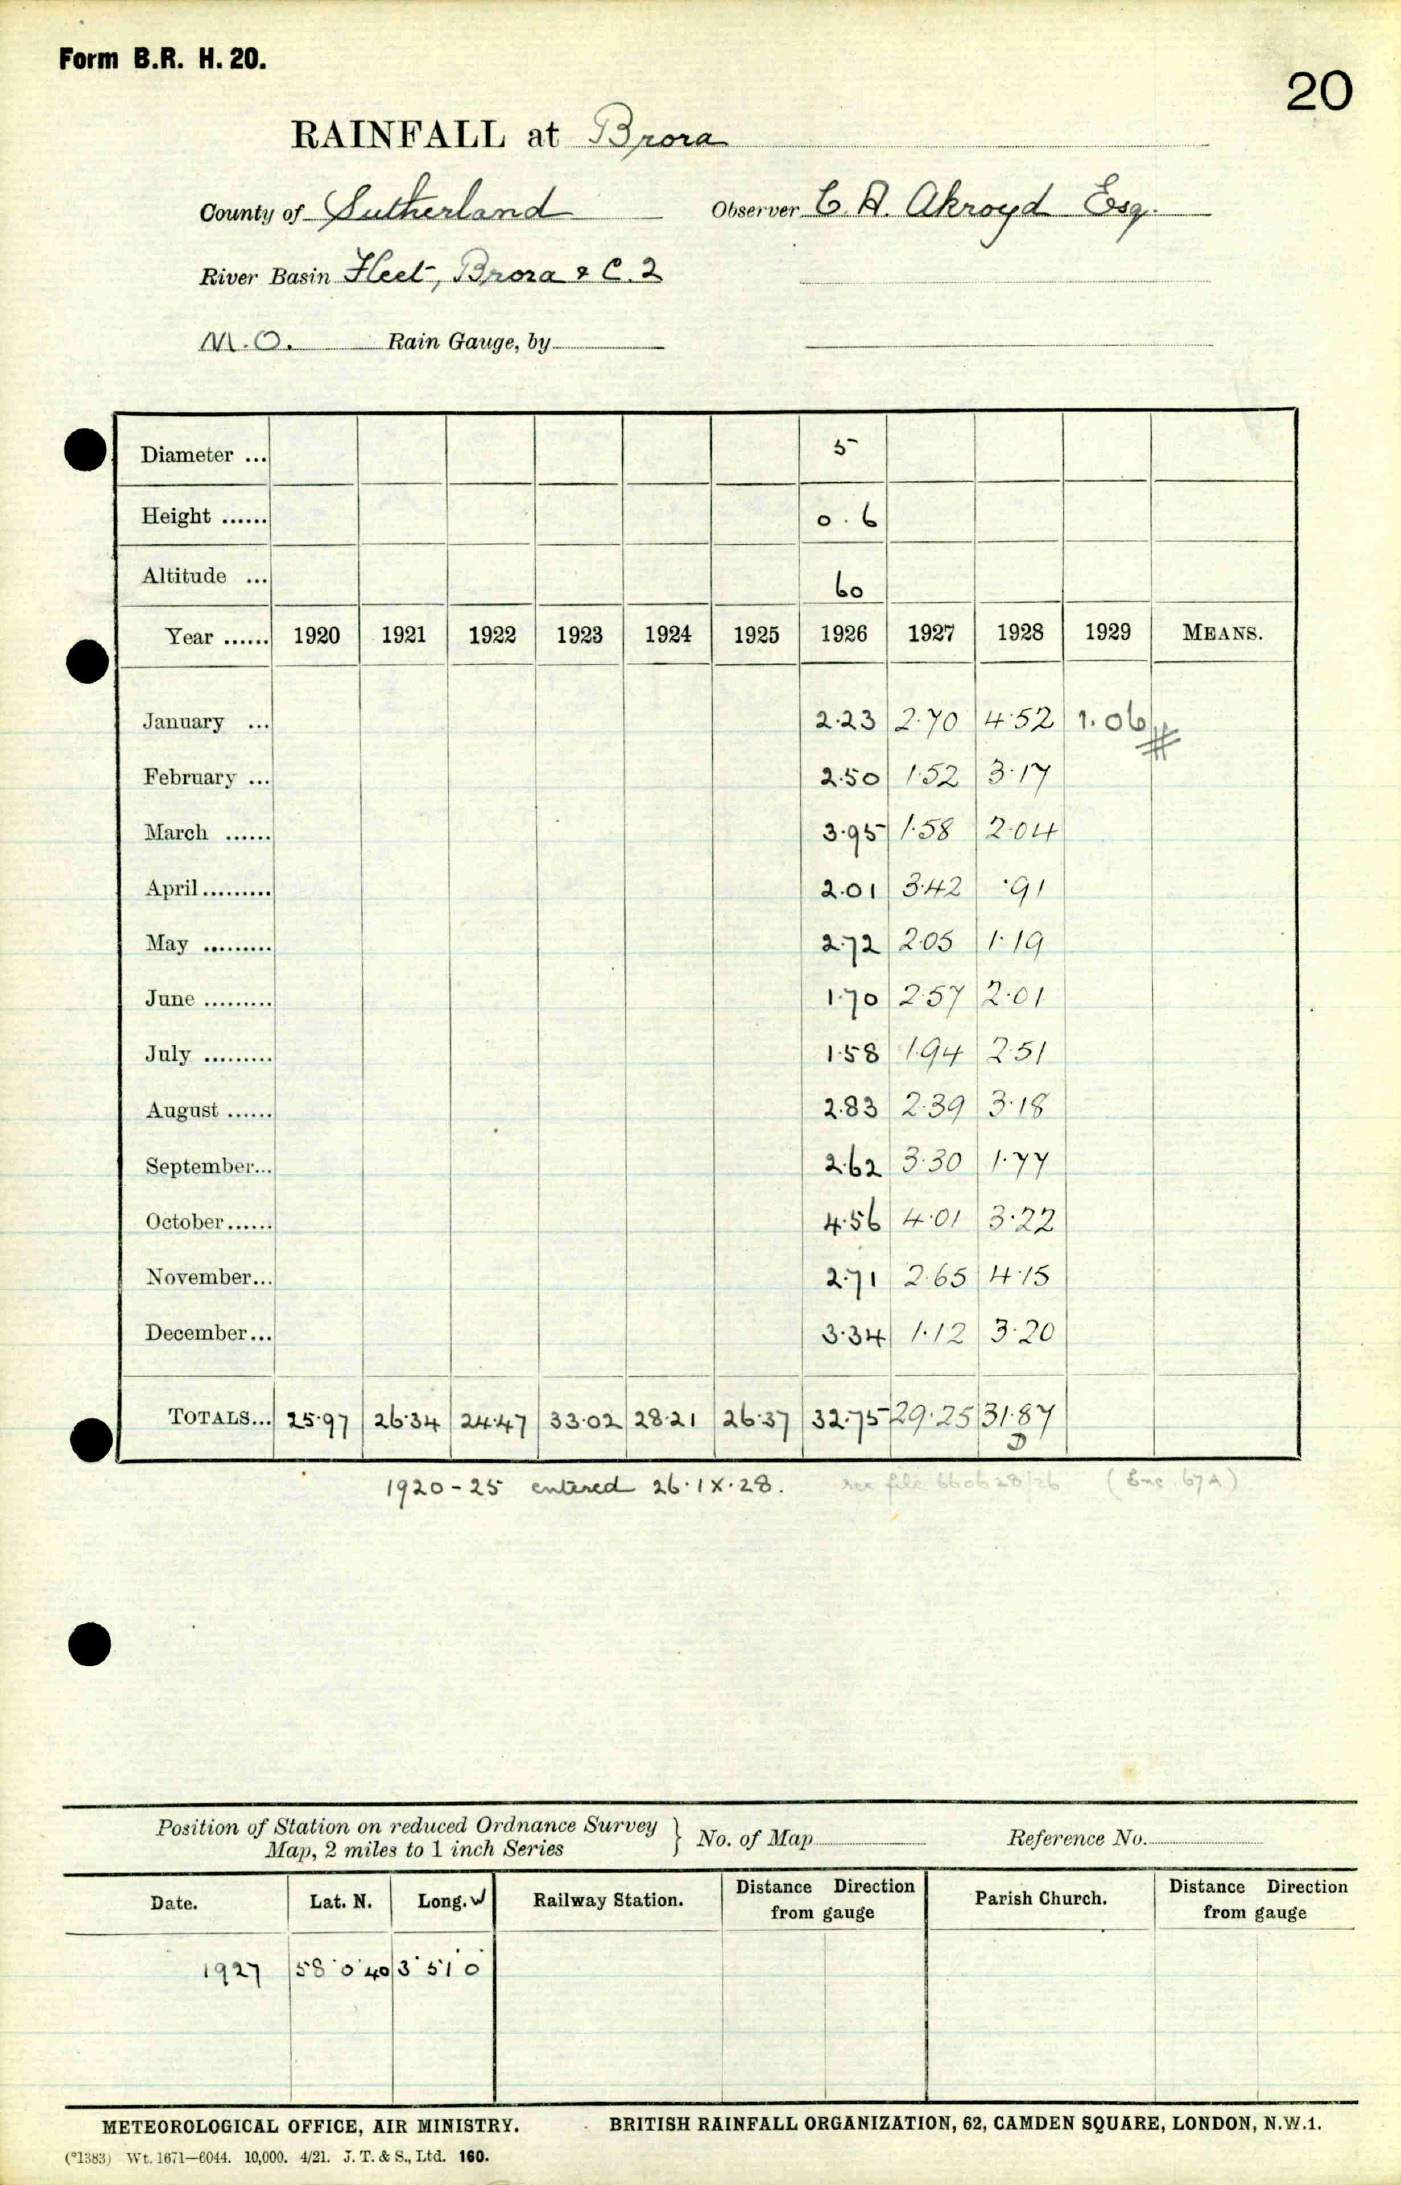 Form B.R. H. 20.
20
RAINFALL at Brora
County of Sutherland Observer C. A. Akroyd Esq.
River Basin Fleet, Brora & C. 2
M.O. Rain Gauge, by
Diameter ... 5
Height ...... 0.6
Altitude ... 60
Year ...... 1920 1921 1922 1923 1924 1925 1926 1927 1928 1929 MEANS.
January ... 2.23 2.70 4.52 1.06
February ... 2.50 1.52 3.17
March ...... 3.95 1.58 2.04
April ......... 2.01 3.42 .91
May ......... 2.72 2.05 1.19
June ......... 1.70 2.57 2.01
July ......... 1.58 1.94 2.51
August ...... 2.83 2.39 3.18
September... 2.62 3.30 1.77
October ...... 4.56 4.01 3.22
November... 2.71 2.65 4.15
December... 3.34 1.12 3.20
TOTALS... 25.97 26.34 24.47 33.02 28.21 26.37 32.75 29.25 31.87
D
1920-25 entered 26.IX.28. see file (Enc. 67A)
Position of Station on reduced Ordnance Survey
Map, 2 miles to 1 inch Series } No. of Map Reference No.
Date. Lat. N. Long. W Railway Station. Distance Direction from gauge Parish Church. Distance Direction from gauge
1927 58° 0' 40 3° 51' 0"
METEOROLOGICAL OFFICE, AIR MINISTRY. BRITISH RAINFALL ORGANIZATION, 62, CAMDEN SQUARE, LONDON, N.W.1.
(*1383) Wt. 1671—6044. 10,000. 4/21. J. T. & S., Ltd. 160.